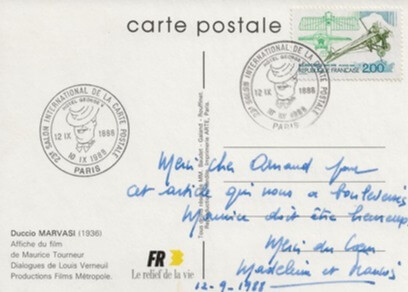 carte postale
RÉPUBLIQUE FRANÇAISE 2,00
23e SALON INTERNATIONAL DE LA CARTE POSTALE
HOTEL
12 IX 1888
10 IX 1988
PARIS
23e SALON INTERNATIONAL DE LA CARTE POSTALE
HOTEL
12 IX 1888
IX 1988
PARIS
Imprimerie ARTE, Paris.
Merci cher Arnaud pour
cet article qui nous a bouleversés
Maurice doit être heureux
Merci du
Madeleine et
12-9-1988
Duccio MARVASI (1936)
Affiche du film
de Maurice Tourneur
Dialogues de Louis Verneuil
Productions Films Métropole.
FR3
Le relief de la vie